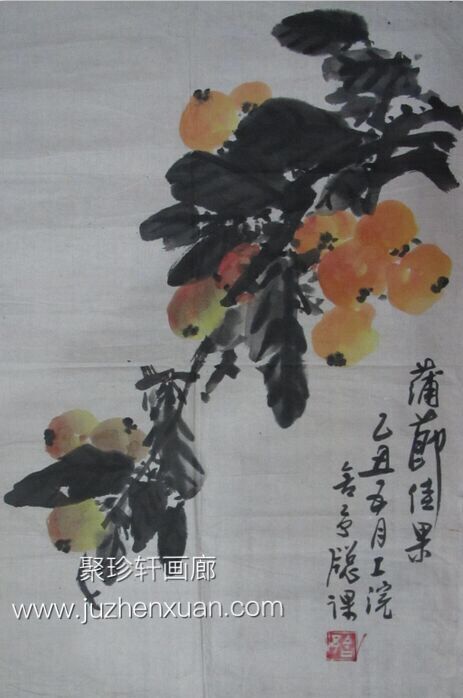 蒲節佳果
乙丑五月工浣
舍予牕课
聚珍轩画廊
www.juzhenxuan.com